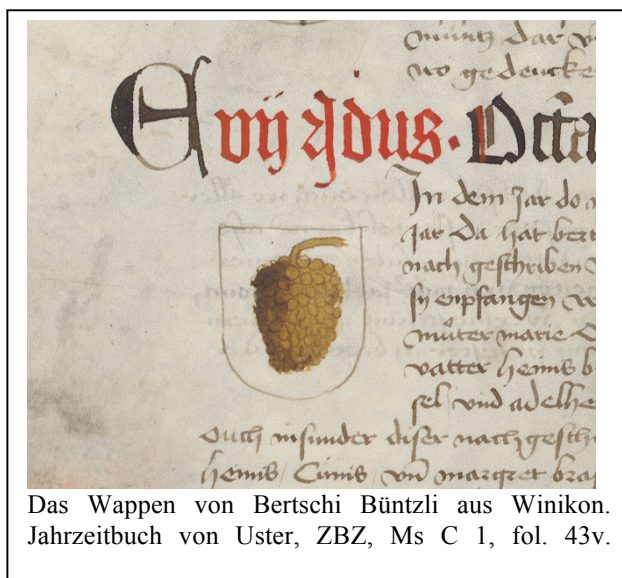 müntz dar v
wo gedencke
E vij Jdus. Octa
In dem Jar do
Jar Da hat bert
nach geschriben
sy enpfangen w
müter marie
vatter heinis b
sel vnd adelhe
Ouch insunder diser nachgesch
heinis / Cünis / vn̄ margret bra
Das Wappen von Bertschi Büntzli aus Winikon.
Jahrzeitbuch von Uster, ZBZ, Ms C 1, fol. 43v.